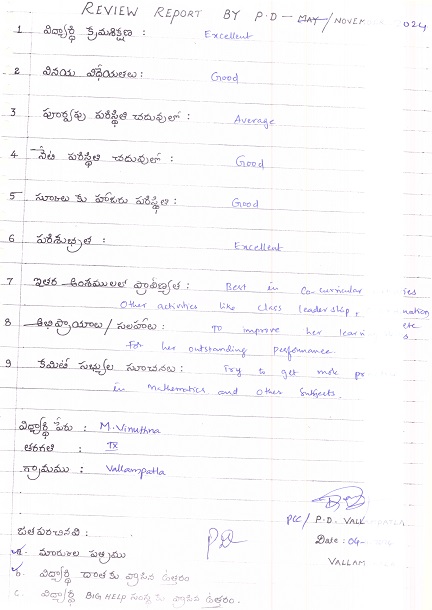 REVIEW REPORT BY P.D - MAY/NOVEM 024
1 విద్యార్థి క్రమశిక్షణ : Excellent
2 వినయ విధేయతలు : Good
3 పూర్వపు పరిస్థితి చదువులో : Average
4 నేటి పరిస్థితి చదువులో : Good
5 స్కూలు కు హాజరు పరిస్థితి : Good
6 పరిశుభ్రత : Excellent
7 ఇతర అంశములలో ప్రావీణ్యత : Best in Co-curricular ies
Other activities like class leadership, nation
8 అభిప్రాయాలు / సలహాలు : To improve her learn etc
For her outstanding performance s
9 కమిటీ సభ్యుల సూచనలు : Try to get more pr
in Mathematics and Other Subjects.
విద్యార్థి పేరు : M. Vinuthna
తరగతి : IX
గ్రామము : Vallampatla
PCC / P.D. VALL
జత పరచినవి : PD Date : 04-
a. మార్కుల పత్రము VALLAM
b. విద్యార్థి దాతకు వ్రాసిన ఉత్తరం
c. విద్యార్థి BIG HELP సంస్థ కు వ్రాసిన ఉత్తరం.